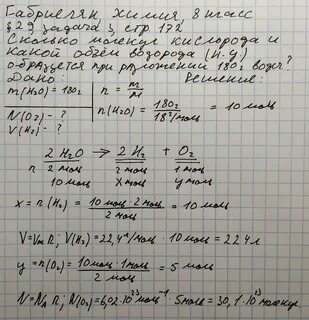 Габриелян, Химия, 8 класс
§29 задача 3, стр. 172
Сколько молекул кислорода и
какой объём водорода (н.у)
образуется при разложении 180г воды?
Дано: Решение:
m(H₂O)=180г n = m/M
N(O₂) - ? n(H₂O) = 180г / 18г/моль = 10 моль
V(H₂) - ?
2 H₂O → 2 H₂ + O₂
n 2 моль 2 моль 1 моль
10 моль x моль y моль
x = n(H₂) = 10 моль · 2 моль / 2 моль = 10 моль
V=Vm n; V(H₂)=22,4 л/моль · 10 моль = 224 л
y = n(O₂) = 10 моль · 1 моль / 2 моль = 5 моль
N=N_A n; N(O₂)=6,02·10²³ моль⁻¹ · 5 моль = 30,1·10²³ молекул.